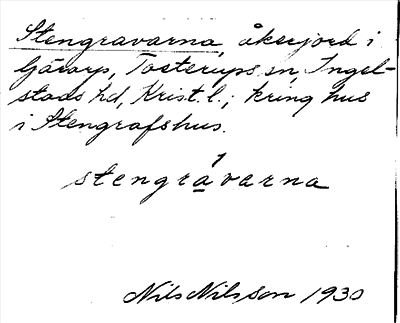 Stengravarna, åkerjord i
Gärarp, Tosterups sn, Ingel-
stads hd, Krist. l.; kring hus
i Stengrafshus.
stengràvarna
Nils Nilsson 1930